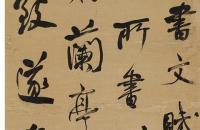 書文賦
所書
蘭亭
遂